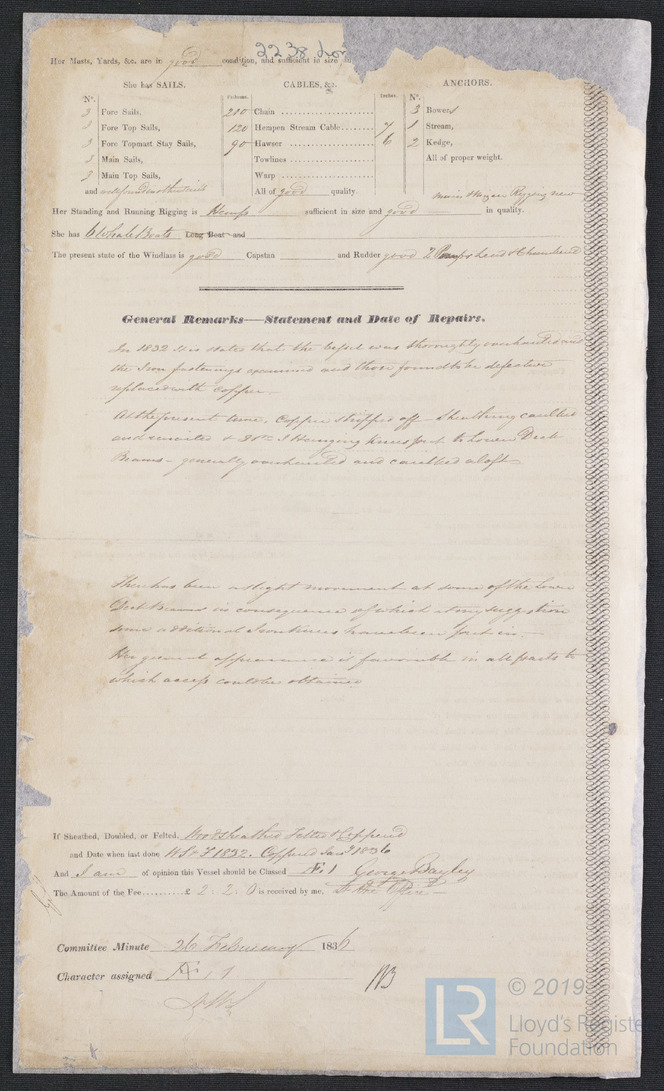 2238 Lon
Her Masts, Yards, &c. are in good condition, and sufficient in size
She has SAILS. CABLES, &c. ANCHORS.
N°. Fathoms. Inches. N°.
3 Fore Sails, 200 Chain 3 Bowers
3 Fore Top Sails, 120 Hempen Stream Cable 7 1 Stream,
3 Fore Topmast Stay Sails, 90 Hawser 6 2 Kedge,
3 Main Sails, Towlines All of proper weight.
3 Main Top Sails, Warp
and All of good quality.
Main Rigging new
Her Standing and Running Rigging is Hemp sufficient in size and good in quality.
She has 6 Whale Boats Long Boat and
The present state of the Windlass is good Capstan and Rudder good 2 Pumps
General Remarks—Statement and Date of Repairs.
In 1832 it is stated that the vessel was thoroughly overhauled and
the Iron fastenings examined and those found to be defective
replaced with copper
At the present time, Copper stripped off - Sheathing caulked
and Hanging knees put to Lower Deck
Beams - generally overhauled and caulked aloft
There has been a slight movement at some of the Lower
Deck Beams in consequence of which at my suggestion
some additional Iron knees have been put in.
Her general appearance is favourable in all parts to
which access could be obtained
If Sheathed, Doubled, or Felted, Woodsheathed Felted & Coppered
and Date when last done, W S & F 1832. Coppered Jany 1836
And I am of opinion this Vessel should be Classed Æ 1 George Bayley
The Amount of the Fee £ 2 : 2 : 0 is received by me,
Committee Minute 26 February 1836
Character assigned Æ 1
© 2019
LR
Lloyd's Register
Foundation